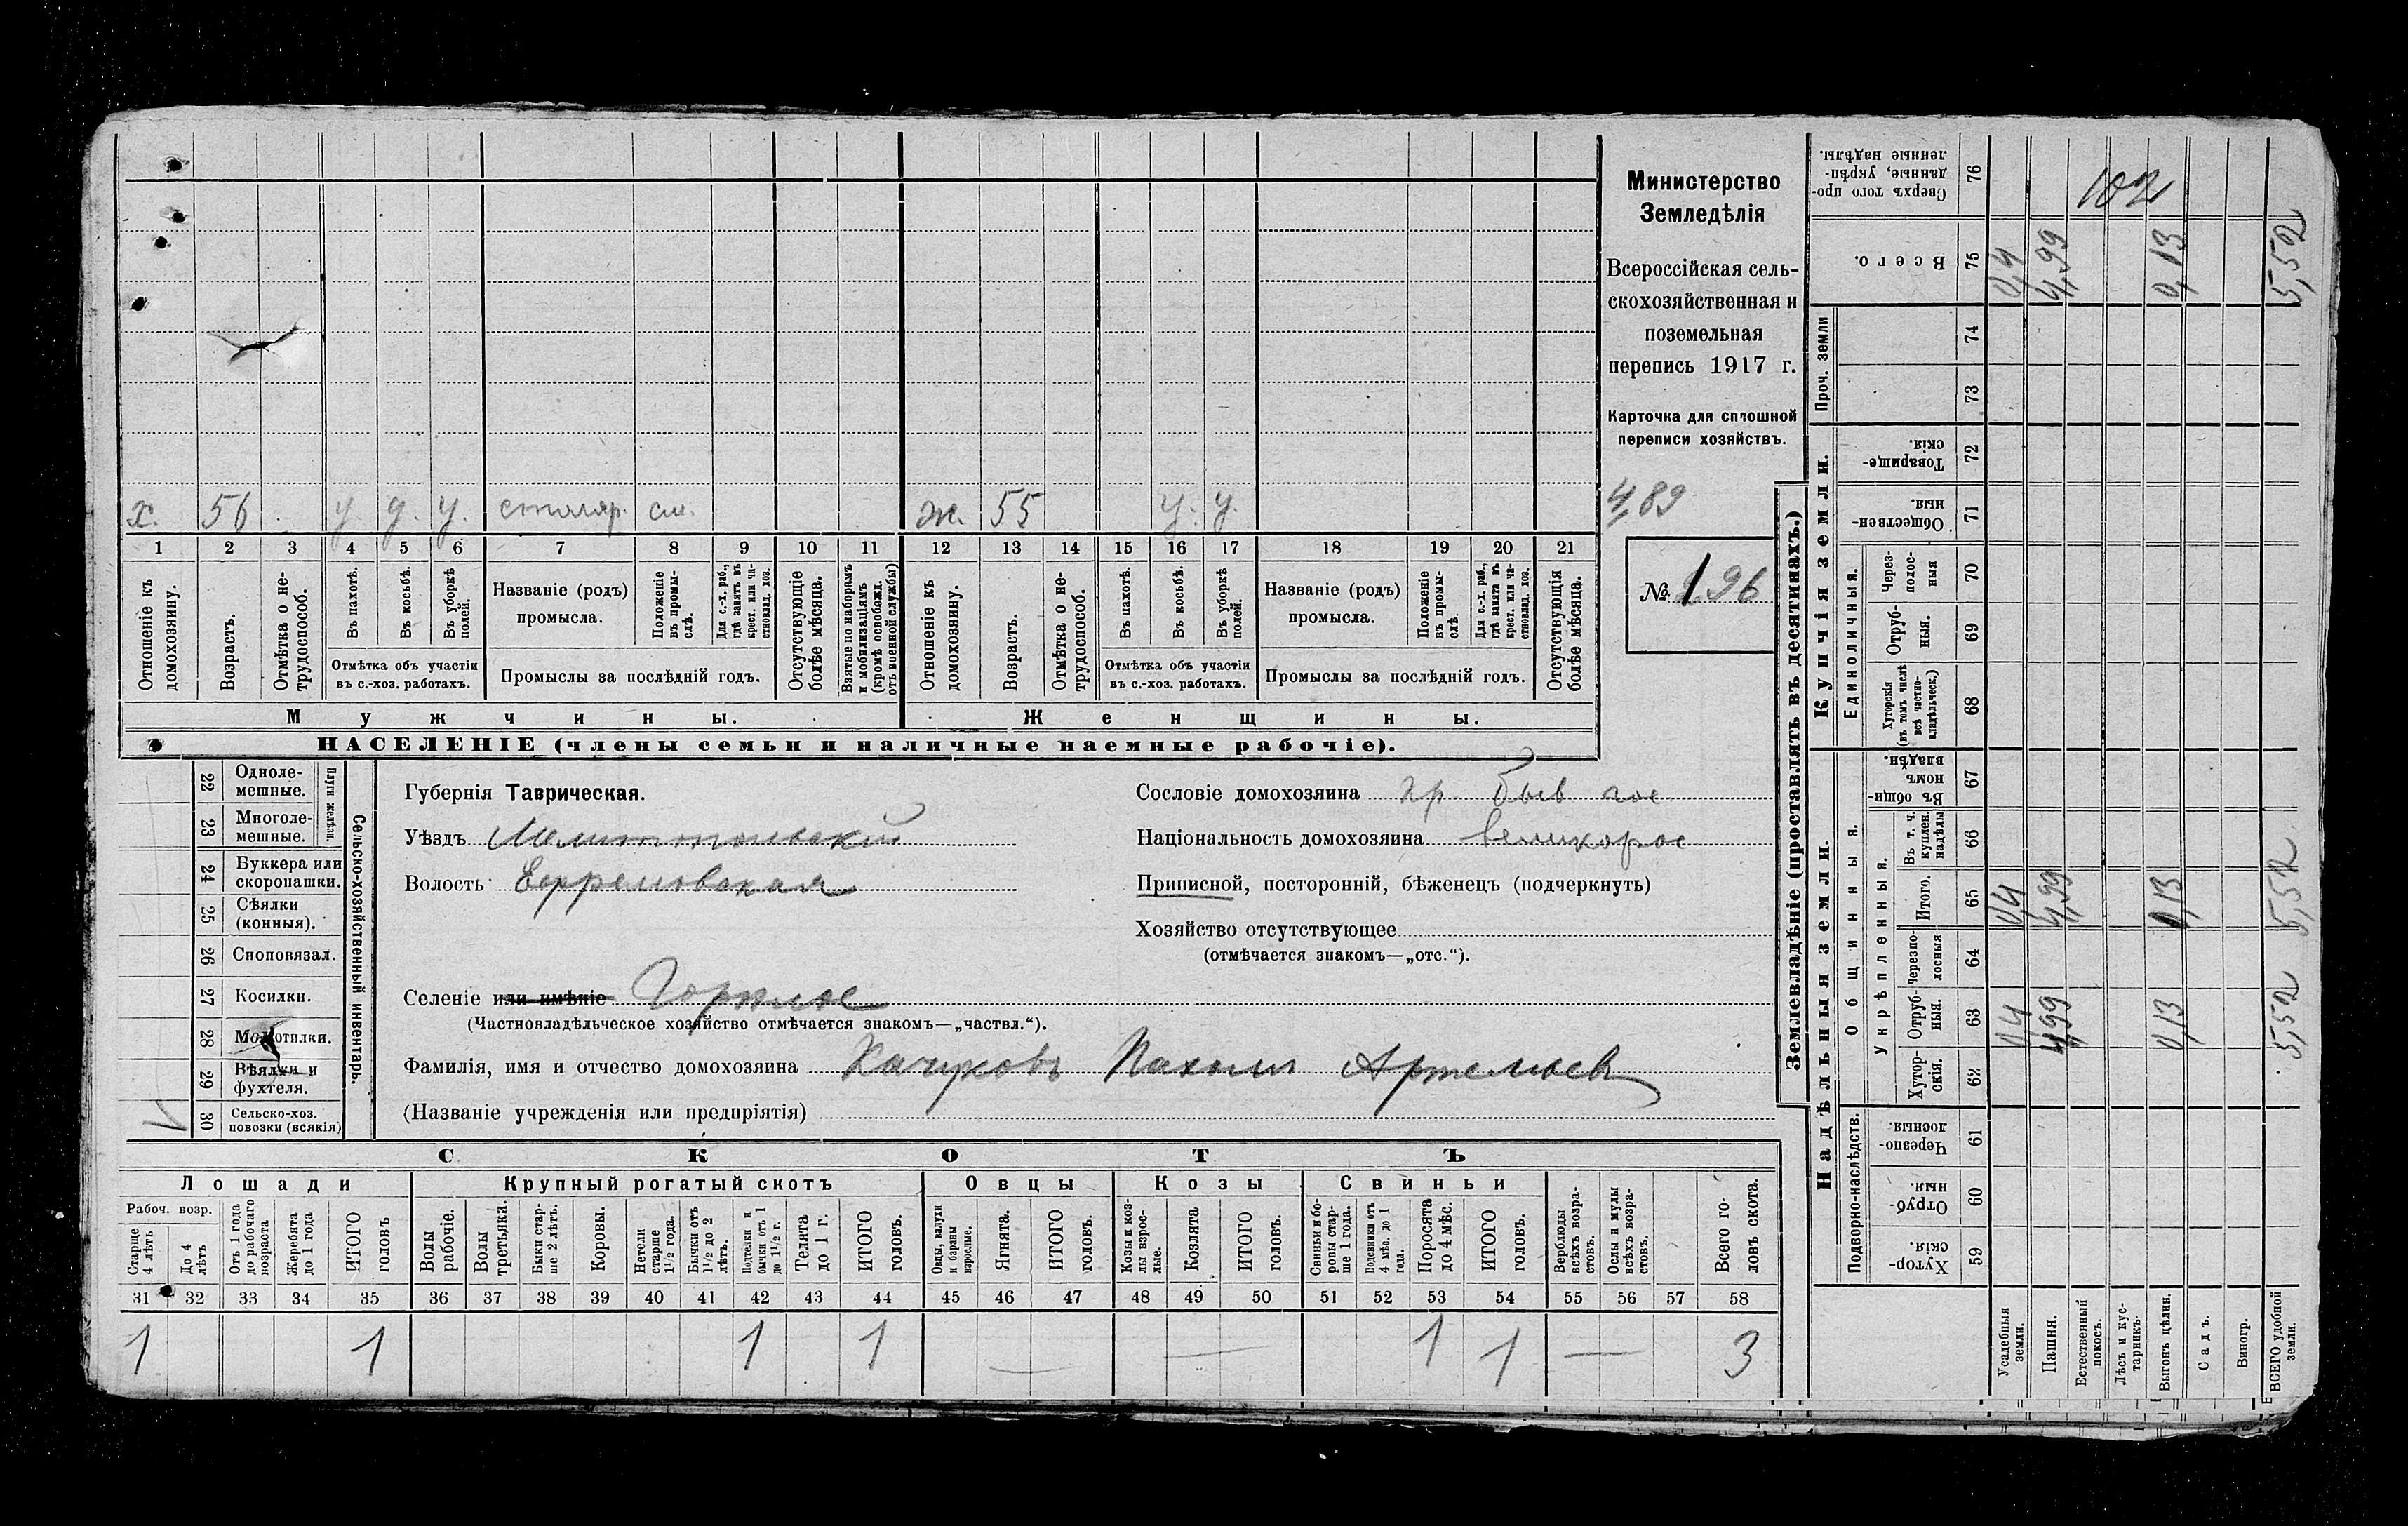 Министерство
Земледѣлія
Всероссійская сель-
скохозяйственная и
поземельная
перепись 1917 г.
Карточка для сплошной
переписи хозяйствъ.
489
№ 196
х. 56 у. у. у. столяр. ж. 55 у. у.
1 2 3 4 5 6 7 8 9 10 11 12 13 14 15 16 17 18 19 20 21
Отношеніе къ домохозяину.
Возрастъ.
Отмѣтка о не-трудоспособ.
Въ пахотѣ.
Въ косьбѣ.
Въ уборкѣ полей.
Отмѣтка объ участіи
въ с.-хоз. работахъ.
Названіе (родъ)
промысла.
Положеніе въ промы-слѣ.
Для с.-х. раб., гдѣ занятъ въ крест. или ча-стновлад. хоз.
Промыслы за послѣдній годъ.
Отсутствующіе болѣе мѣсяца.
Взятые по наборамъ и мобилизаціямъ (кромѣ освобожд. отъ военной службы)
Отношеніе къ домохозяину.
Возрастъ.
Отмѣтка о не-трудоспособ.
Въ пахотѣ.
Въ косьбѣ.
Въ уборкѣ полей.
Отмѣтка объ участіи
въ с.-хоз. работахъ.
Названіе (родъ)
промысла.
Положеніе въ промы-слѣ.
Для с.-х. раб., гдѣ занята въ крест. или ча-стновлад. хоз.
Промыслы за послѣдній годъ.
Отсутствующія болѣе мѣсяца.
Мужчины.
Женщины.
НАСЕЛЕНІЕ (члены семьи и наличные наемные рабочіе).
Сельско-хозяйственный инвентарь.
Плуги желѣзн.
22 Одноле-мешные.
23 Многоле-мешные.
24 Буккера или скоропашки.
25 Сѣялки (конныя).
26 Сноповязал.
27 Косилки.
28 Молотилки.
29 Вѣялки и фухтеля.
30 Сельско-хоз. повозки (всякія)
Губернія Таврическая.
Уѣздъ Мелитопольский
Волость Ефремовская
Селеніе или имѣніе Горелое
(Частновладѣльческое хозяйство отмѣчается знакомъ—„частвл.“).
Фамилія, имя и отчество домохозяина Качуковъ Пахомъ Артемьев
(Названіе учрежденія или предпріятія)
Сословіе домохозяина кр. быв гос
Національность домохозяина великорос
Приписной, посторонній, бѣженец (подчеркнуть)
Хозяйство отсутствующее
(отмѣчается знакомъ—„отс.“).
СКОТЪ
Лошади Крупный рогатый скотъ Овцы Козы Свиньи
Рабоч. возр.
Старше 4 лѣтъ
До 4 лѣтъ
Отъ 1 года до рабочаго возраста
Жеребята до 1 года
ИТОГО головъ
Волы рабочіе.
Волы третьяки.
Быки стар-ше 2 лѣтъ.
Коровы.
Нетели старше 1½ года.
Бычки отъ 1½ до 2 лѣтъ.
Подтелки и бычки отъ 1 до 1½ г.
Телята до 1 г.
ИТОГО головъ.
Овцы, валухи и бараны взрослые.
Ягнята.
ИТОГО головъ.
Козы и коз-лы взрос-лые.
Козлята
ИТОГО головъ.
Свиньи и бо-ровы стар-ше 1 года.
Подсвинки отъ 4 мѣс. до 1 года.
Поросята до 4 мѣс.
ИТОГО головъ.
Верблюды всѣхъ возра-стовъ.
Ослы и мулы всѣхъ возра-стовъ.
Всего го-ловъ скота.
31 32 33 34 35 36 37 38 39 40 41 42 43 44 45 46 47 48 49 50 51 52 53 54 55 56 57 58
1 1 1 1 — — 1 1 — 3
Землевладѣніе (проставлять въ десятинахъ.)
Надѣльныя земли.
Купчія земли.
Проч. земли
Подворно-наслѣдств.
Общинныя.
Укрѣпленныя.
Единоличныя.
Сверхъ того про-данные, укрѣп-ленные надѣлы. 76
102
Всего. 75 0,4 4,99 0,13 5,52
74
73
Товарище-скія. 72
Обществен-ныя. 71
Через-полос-ныя 70
Отруб-ныя. 69
Хуторскія (въ томъ числѣ всѣ частно-владѣльческ.) 68
Въ общи-номъ владѣн. 67
Въ т. ч. куплен. надѣлы 66
Итого. 65 0,4 4,99 0,13 5,52
Черезпо-лосныя 64
Отруб-ныя. 63 0,4 4,99 0,13 5,52
Хутор-скія. 62
Черезпо-лосныя. 61
Отруб-ныя. 60
Хутор-скія. 59
Усадебныя земли.
Пашня.
Естественный покосъ.
Лѣсъ и кус-тарникъ.
Выгонъ цѣлин.
Садъ.
Виногр.
ВСЕГО удобной земли.